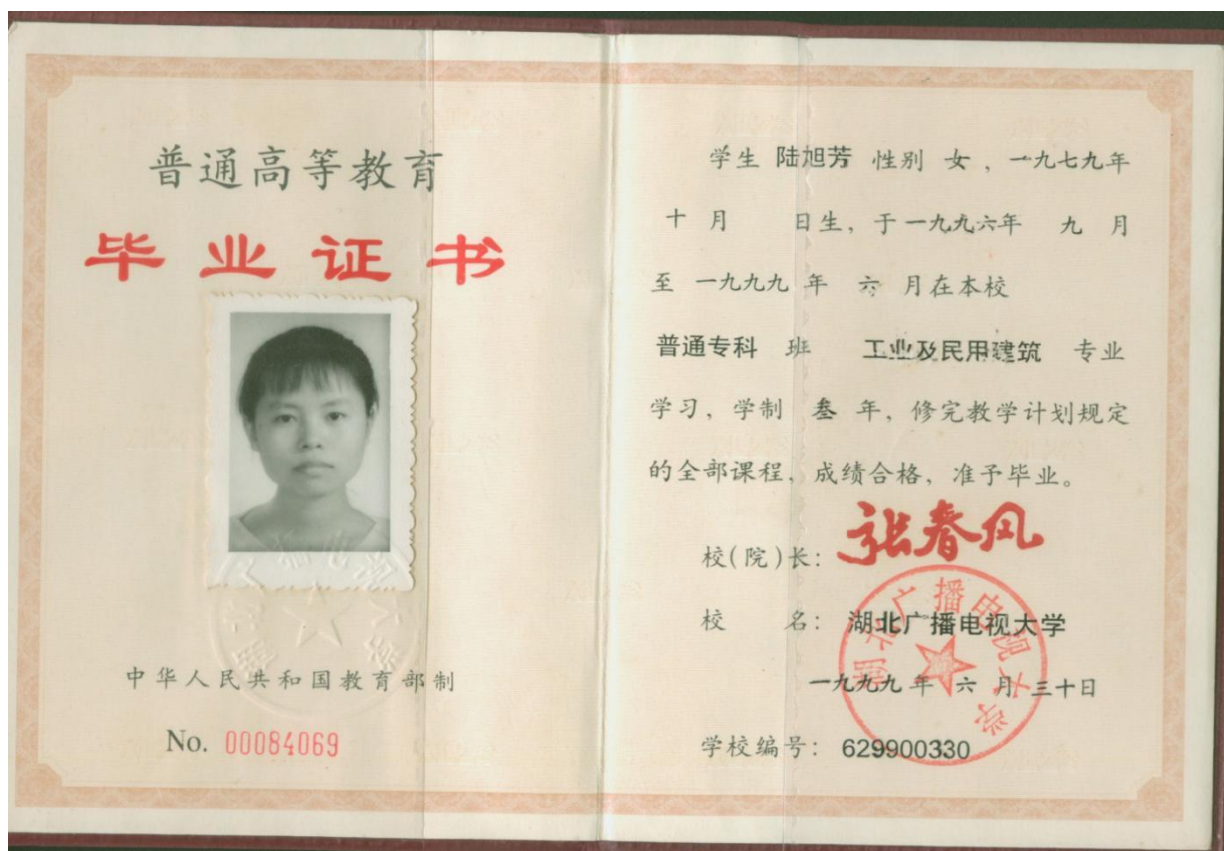 普通高等教育
毕业证书
中华人民共和国教育部制
No. 00084069
学生 陆旭芳 性别 女，一九七九年
十 月 日生，于一九九六年 九 月
至 一九九九 年 六 月在本校
普通专科 班 工业及民用建筑 专业
学习，学制 叁 年，修完教学计划规定
的全部课程，成绩合格，准予毕业。
校(院)长：张春风
校 名：湖北广播电视大学
一九九九年 六 月 三十日
学校编号：629900330
湖北广播电视大学
湖北广播电视大学